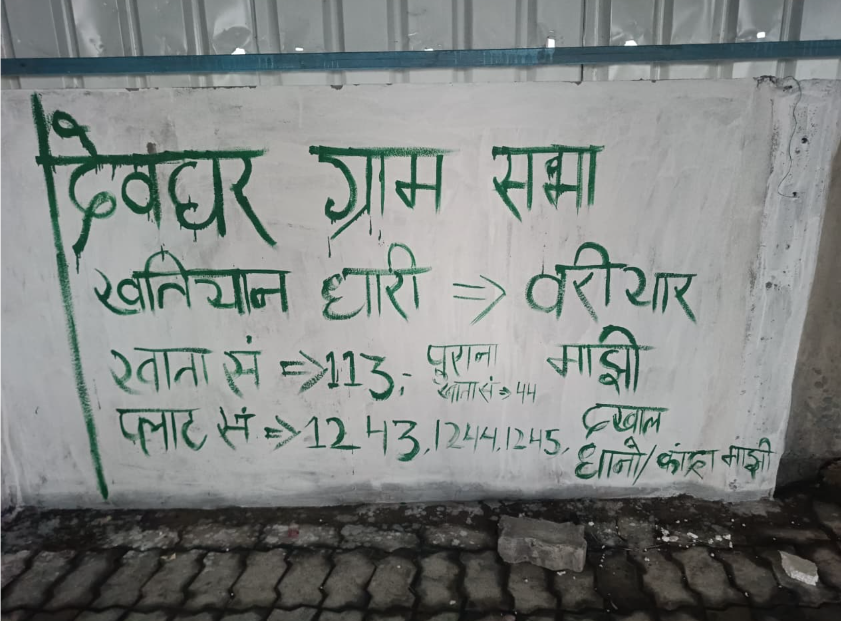 देवघर ग्राम सभा
खतियान धारी => वरीयार
खाता सं => 113,- पुराना खाता सं => 44 माझी
प्लाट सं => 1243,1244,1245, दखाल
धानो/कांहा मांझी